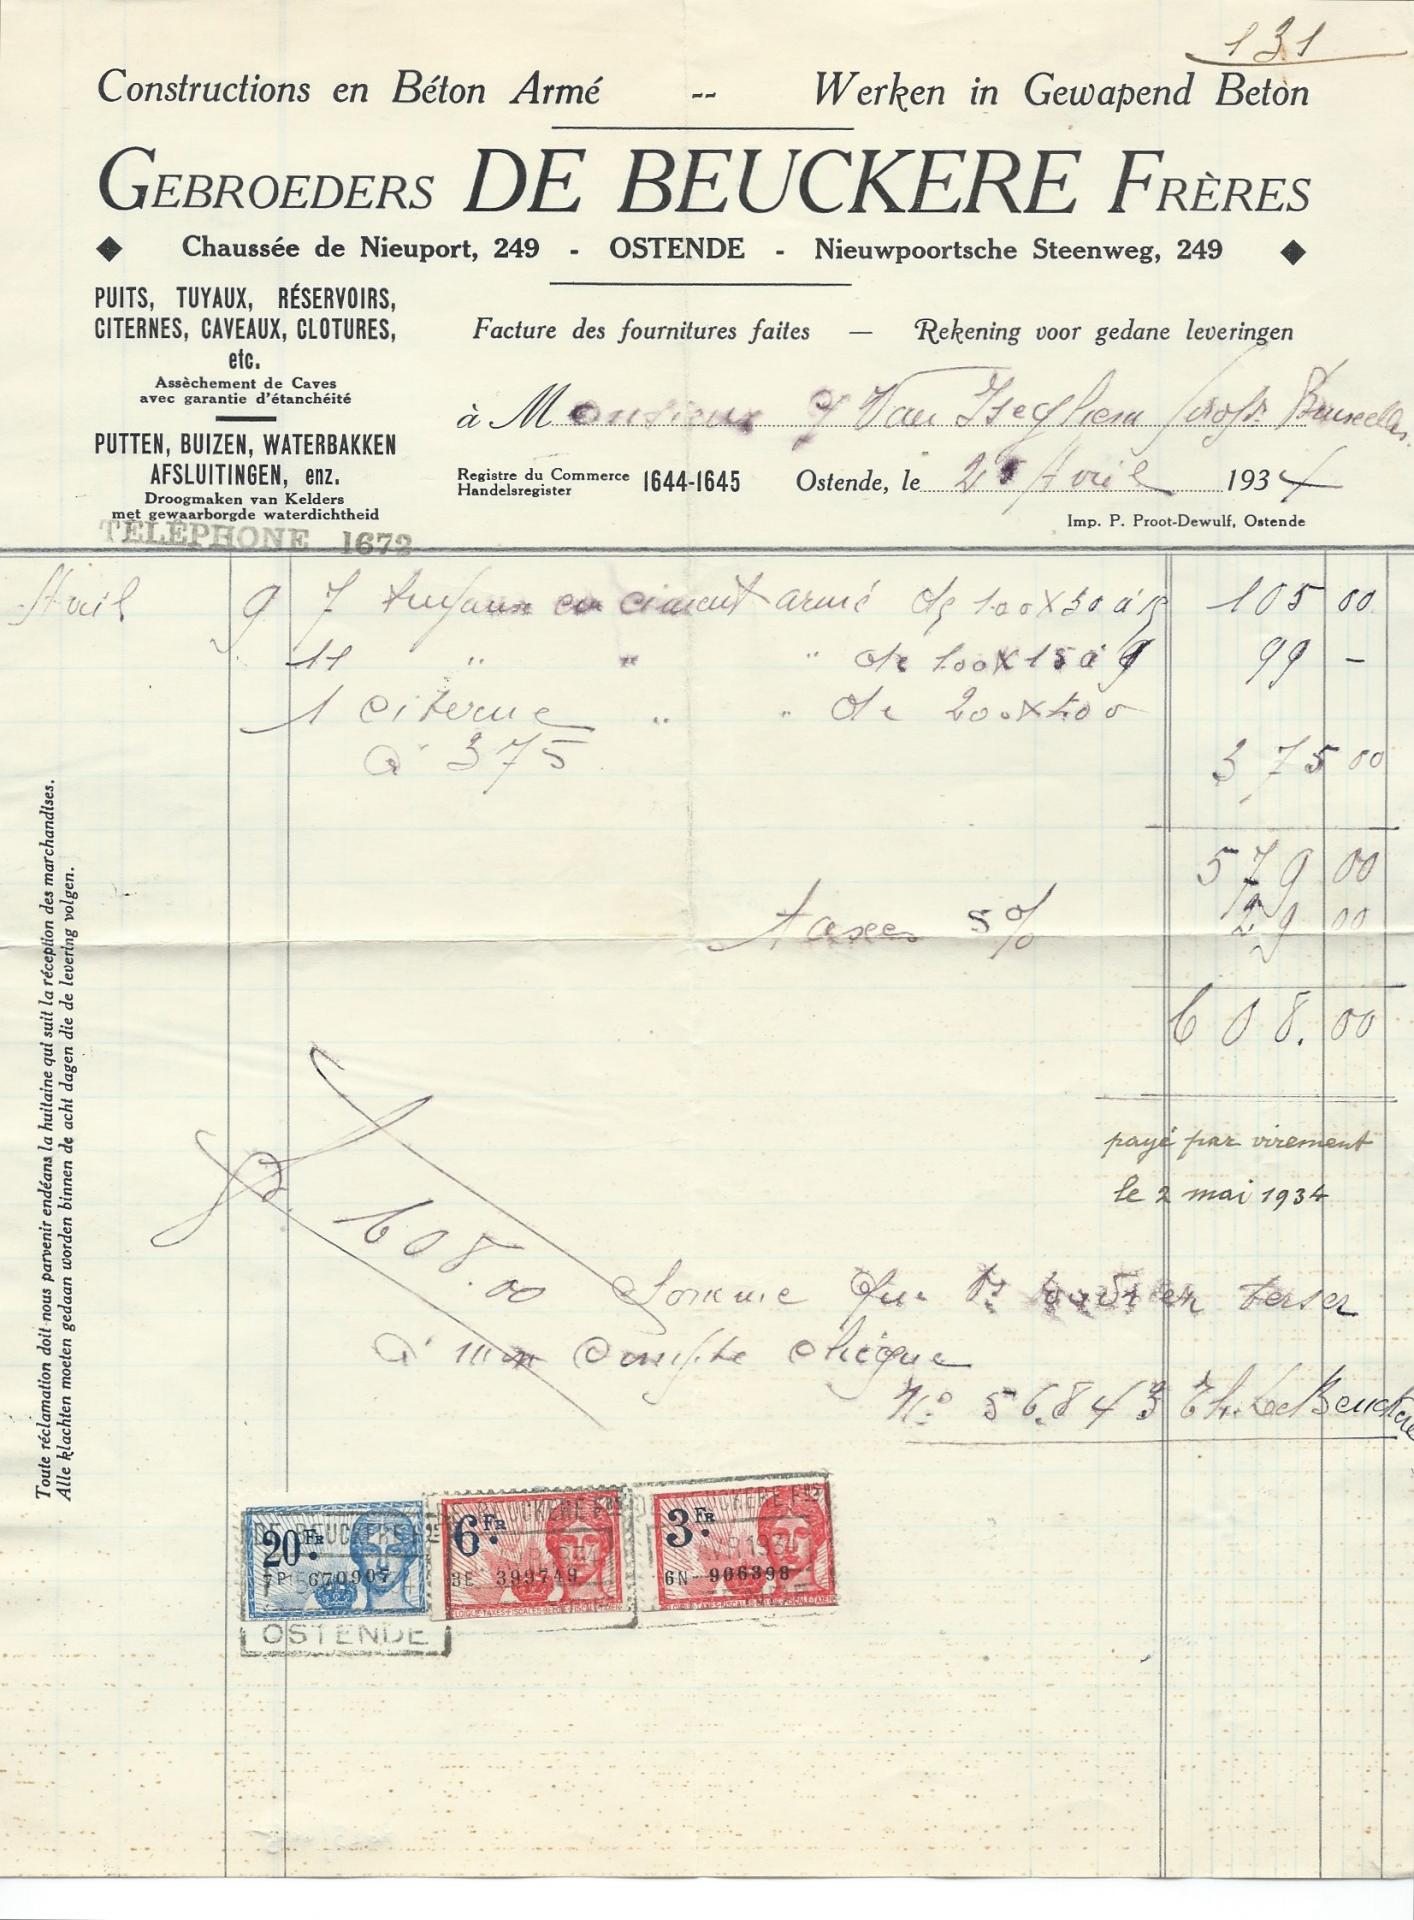 131
Constructions en Béton Armé -- Werken in Gewapend Beton
GEBROEDERS DE BEUCKERE FRÈRES
Chaussée de Nieuport, 249 - OSTENDE - Nieuwpoortsche Steenweg, 249
PUITS, TUYAUX, RÉSERVOIRS,
CITERNES, CAVEAUX, CLOTURES,
etc.
Assèchement de Caves
avec garantie d'étanchéité
PUTTEN, BUIZEN, WATERBAKKEN
AFSLUITINGEN, enz.
Droogmaken van Kelders
met gewaarborgde waterdichtheid
TÉLÉPHONE 1672
Facture des fournitures faites — Rekening voor gedane leveringen
à Monsieur Van Iseghem Bruxelles
Registre du Commerce
Handelsregister
1644-1645
Ostende, le Avril 1934
Imp. P. Proot-Dewulf, Ostende
Avril 9 7 tuyaux en ciment armé de 100X30 à 15 105 00
11 " " " de 100X15 à 9 99 -
1 citerne " " de 200X200
à 375
375 00
579 00
taxes 5% 29 00
608.00
payé par virement
le 2 mai 1934
608.00 Somme que verser
à mon compte chèque
No 56.843 Th. De Beuckere
Toute réclamation doit nous parvenir endéans la huitaine qui suit la réception des marchandises.
Alle klachten moeten gedaan worden binnen de acht dagen die de levering volgen.
DE BEUCKERE Fres
20 FR
7P 670907
OSTENDE
6 FR
3E 399749
3 FR
6N 906398
AVR 1934